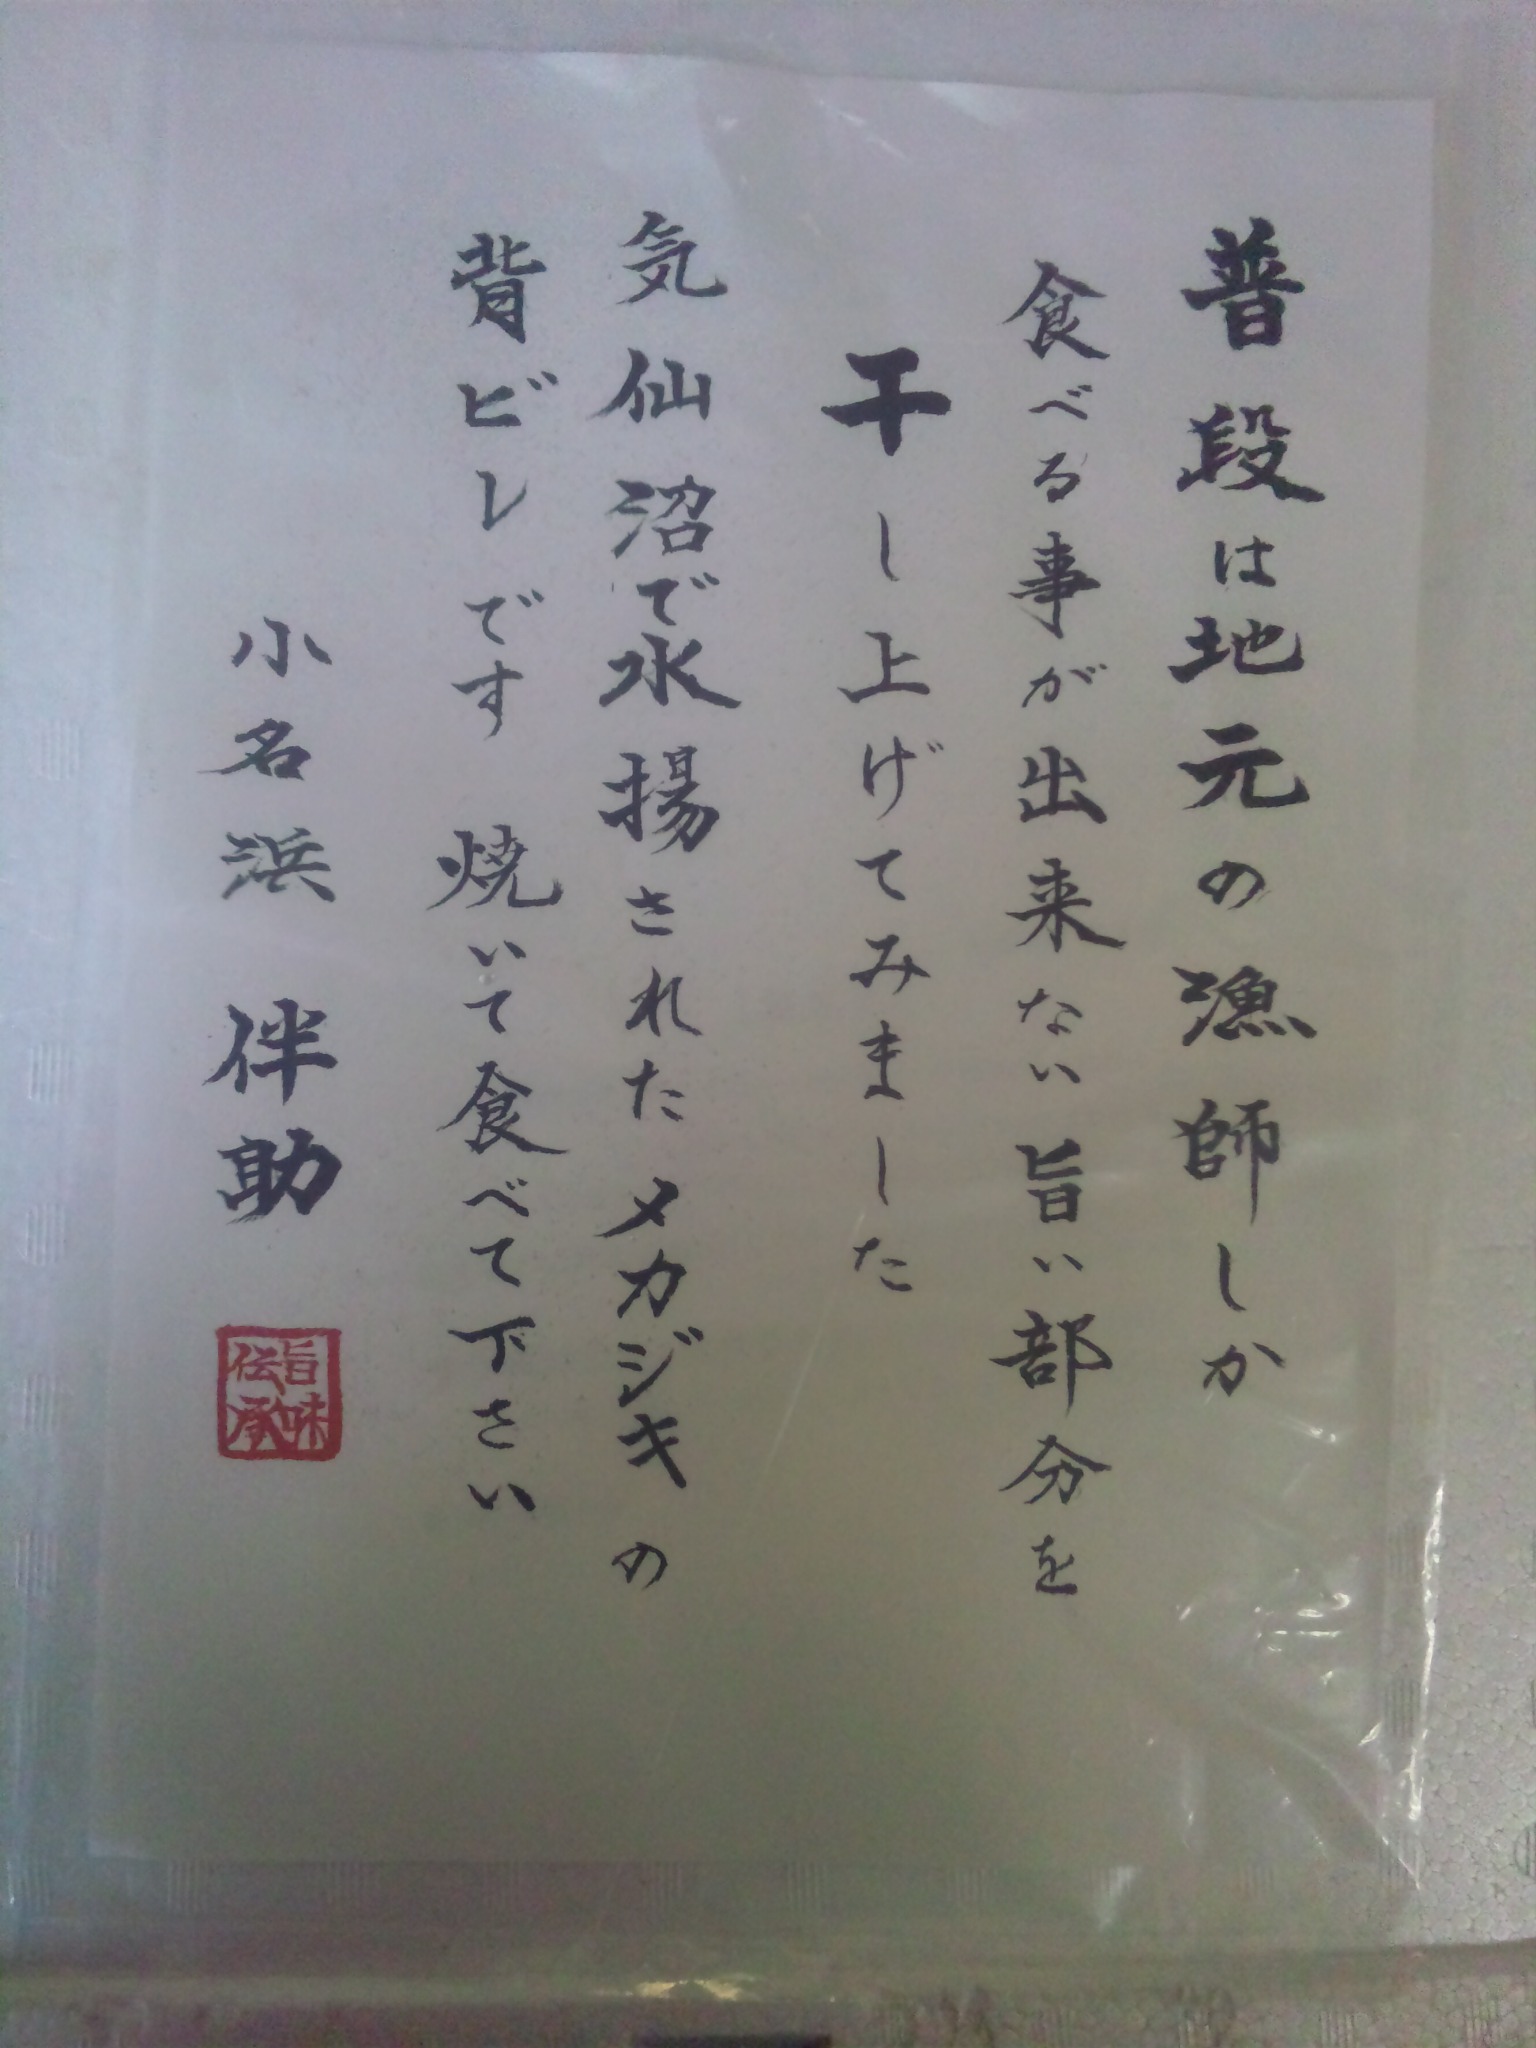 普段は地元の漁師しか
食べる事が出来ない旨い部分を
干し上げてみました
気仙沼で水揚された メカジキの
背ビレです 焼いて食べて下さい
小名浜 伴助
旨味
伝承